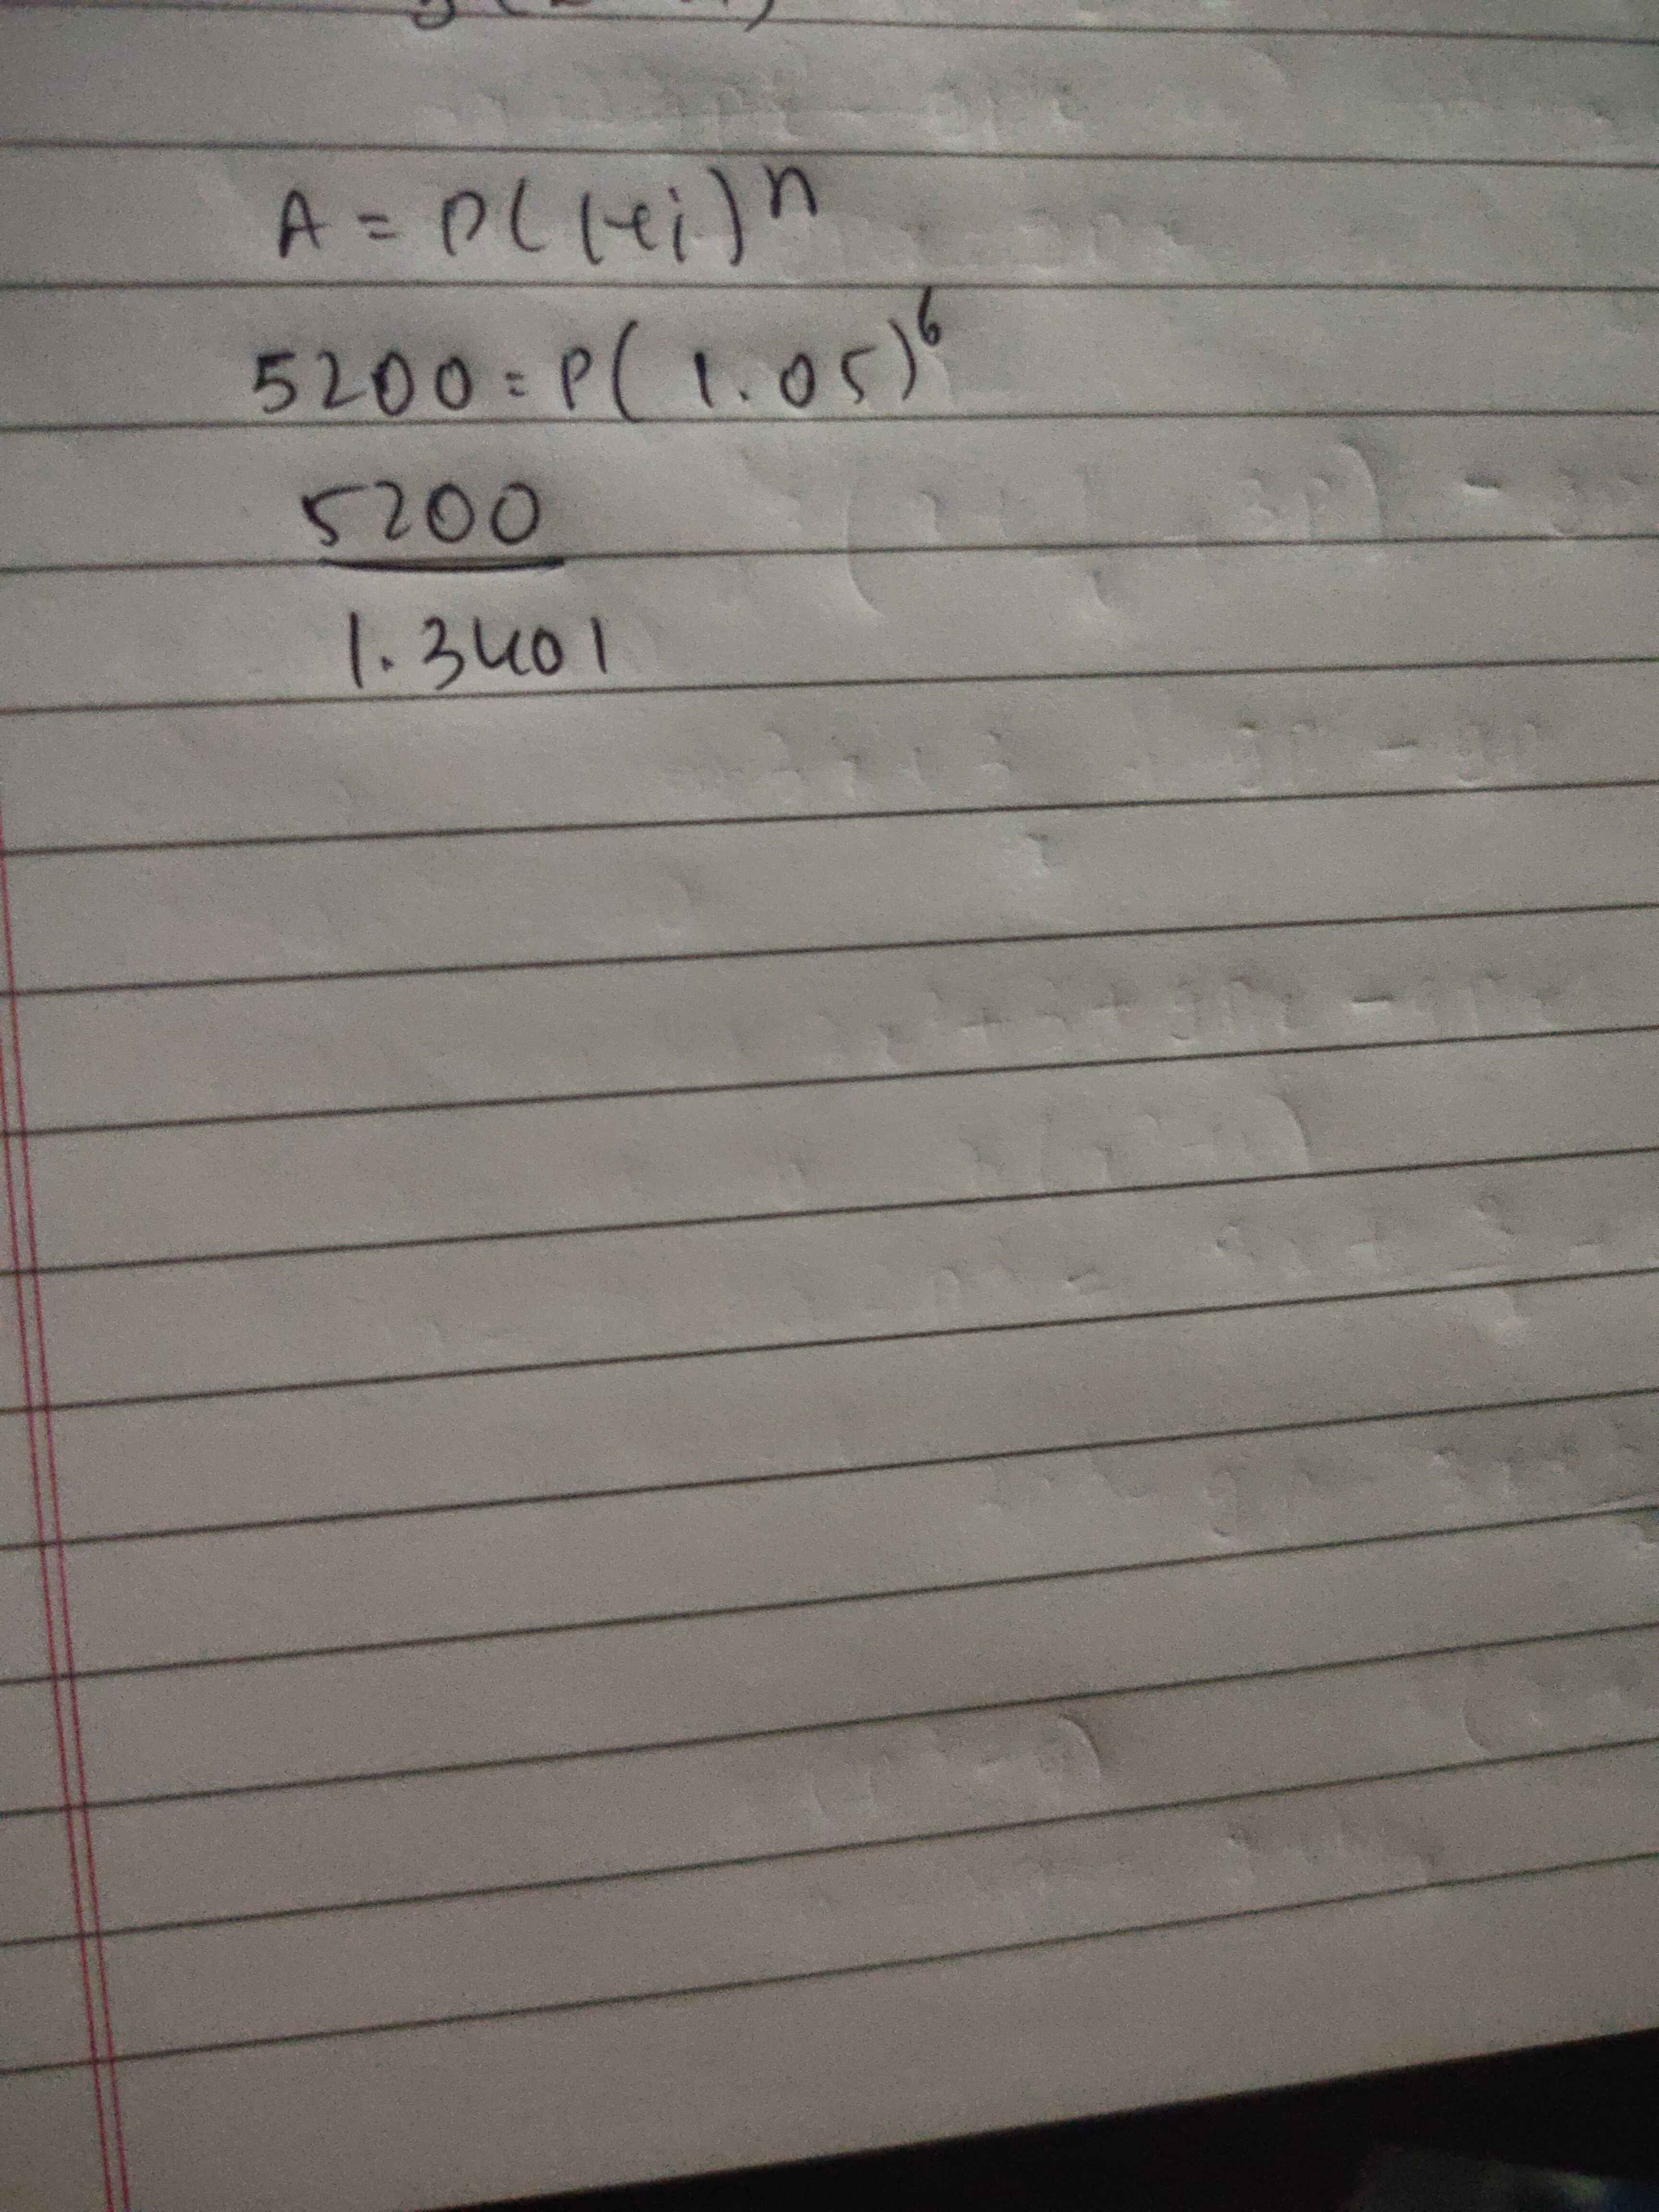 A = P(1+i)^n
5200 = P(1.05)^6
5200
1.3401